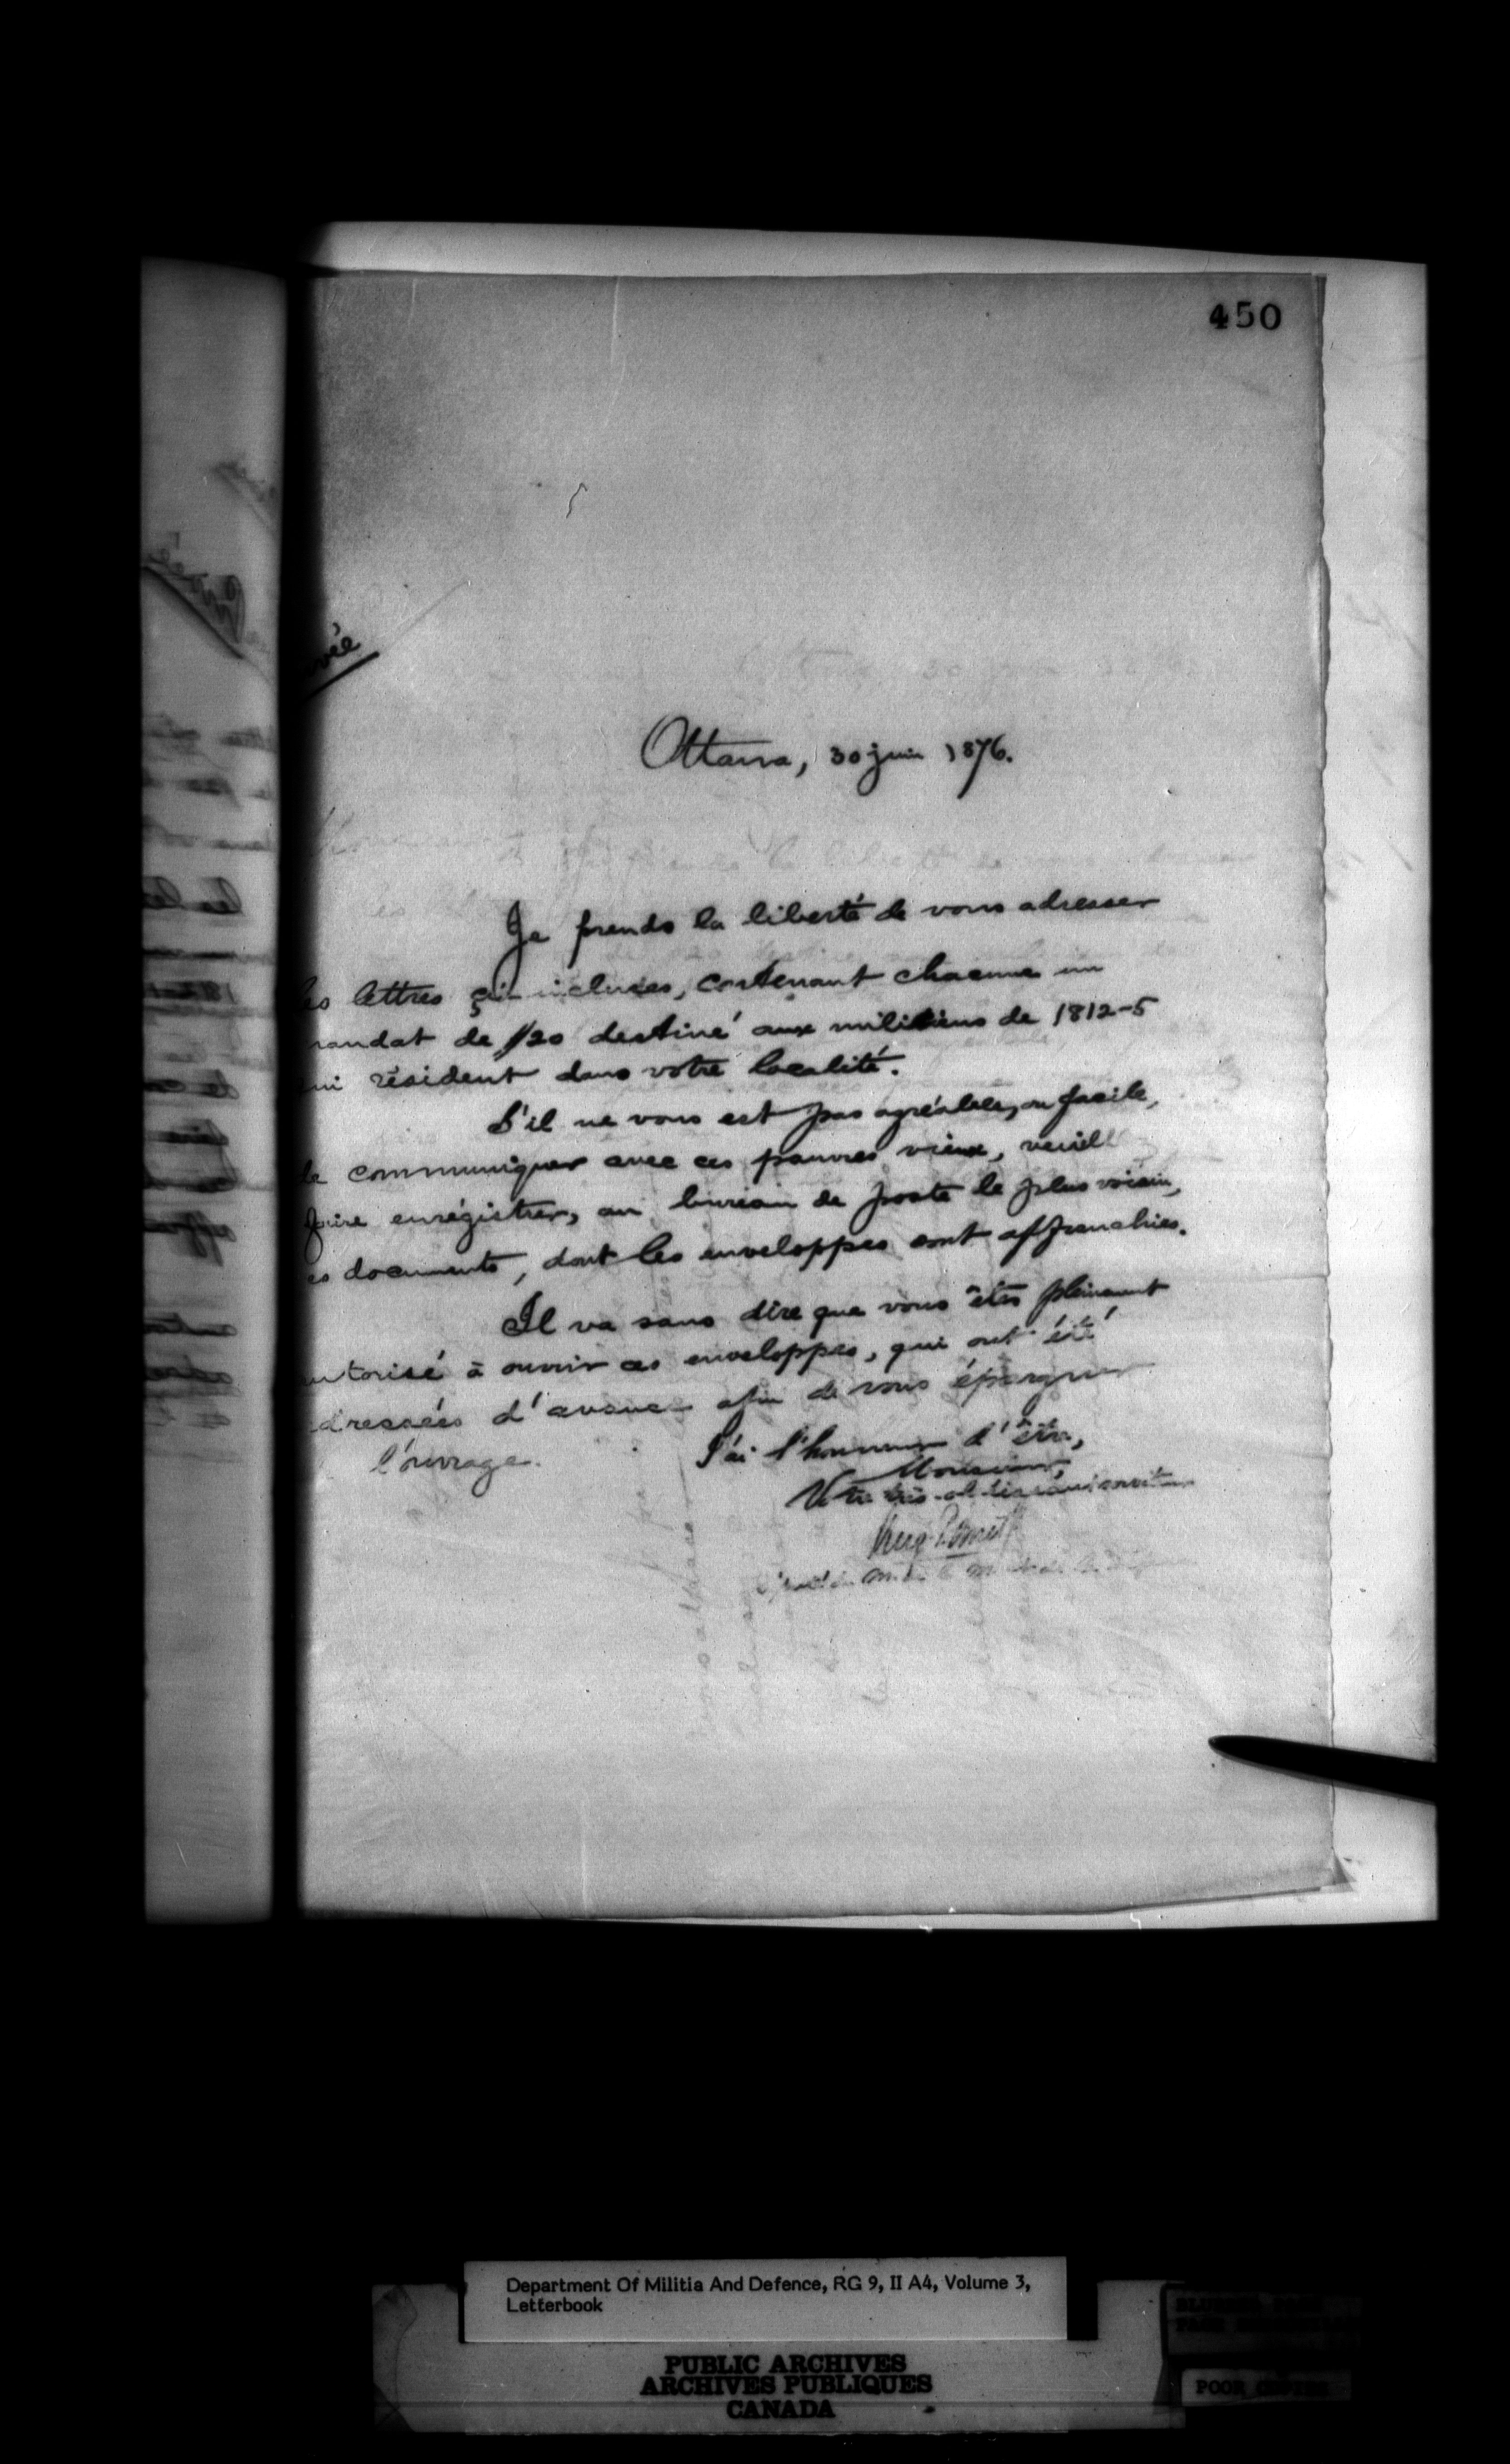 450
vée
Ottawa, 30 juin 1876.
Je prends la liberté de vous adresser
les lettres ci-incluses, contenant chacune un
mandat de $20 destiné aux miliciens de 1812-5
qui résident dans votre localité.
S'il ne vous est pas agréable, ou facile,
de communiquer avec ces pauvres vieux, veuill
faire enrégistrer, au bureau de poste le plus voisin,
es documents, dont les enveloppes sont affranchies.
Il va sans dire que vous êtes pleinement
autorisé à ouvrir ces enveloppes, qui ont été
adressées d'avance afin de vous épargner
l'ouvrage.
J'ai l'honneur d'être,
Monsieur,
Votre très-obéissant serviteur
Department Of Militia And Defence, RG 9, II A4, Volume 3,
Letterbook
PUBLIC ARCHIVES
ARCHIVES PUBLIQUES
CANADA
POOR